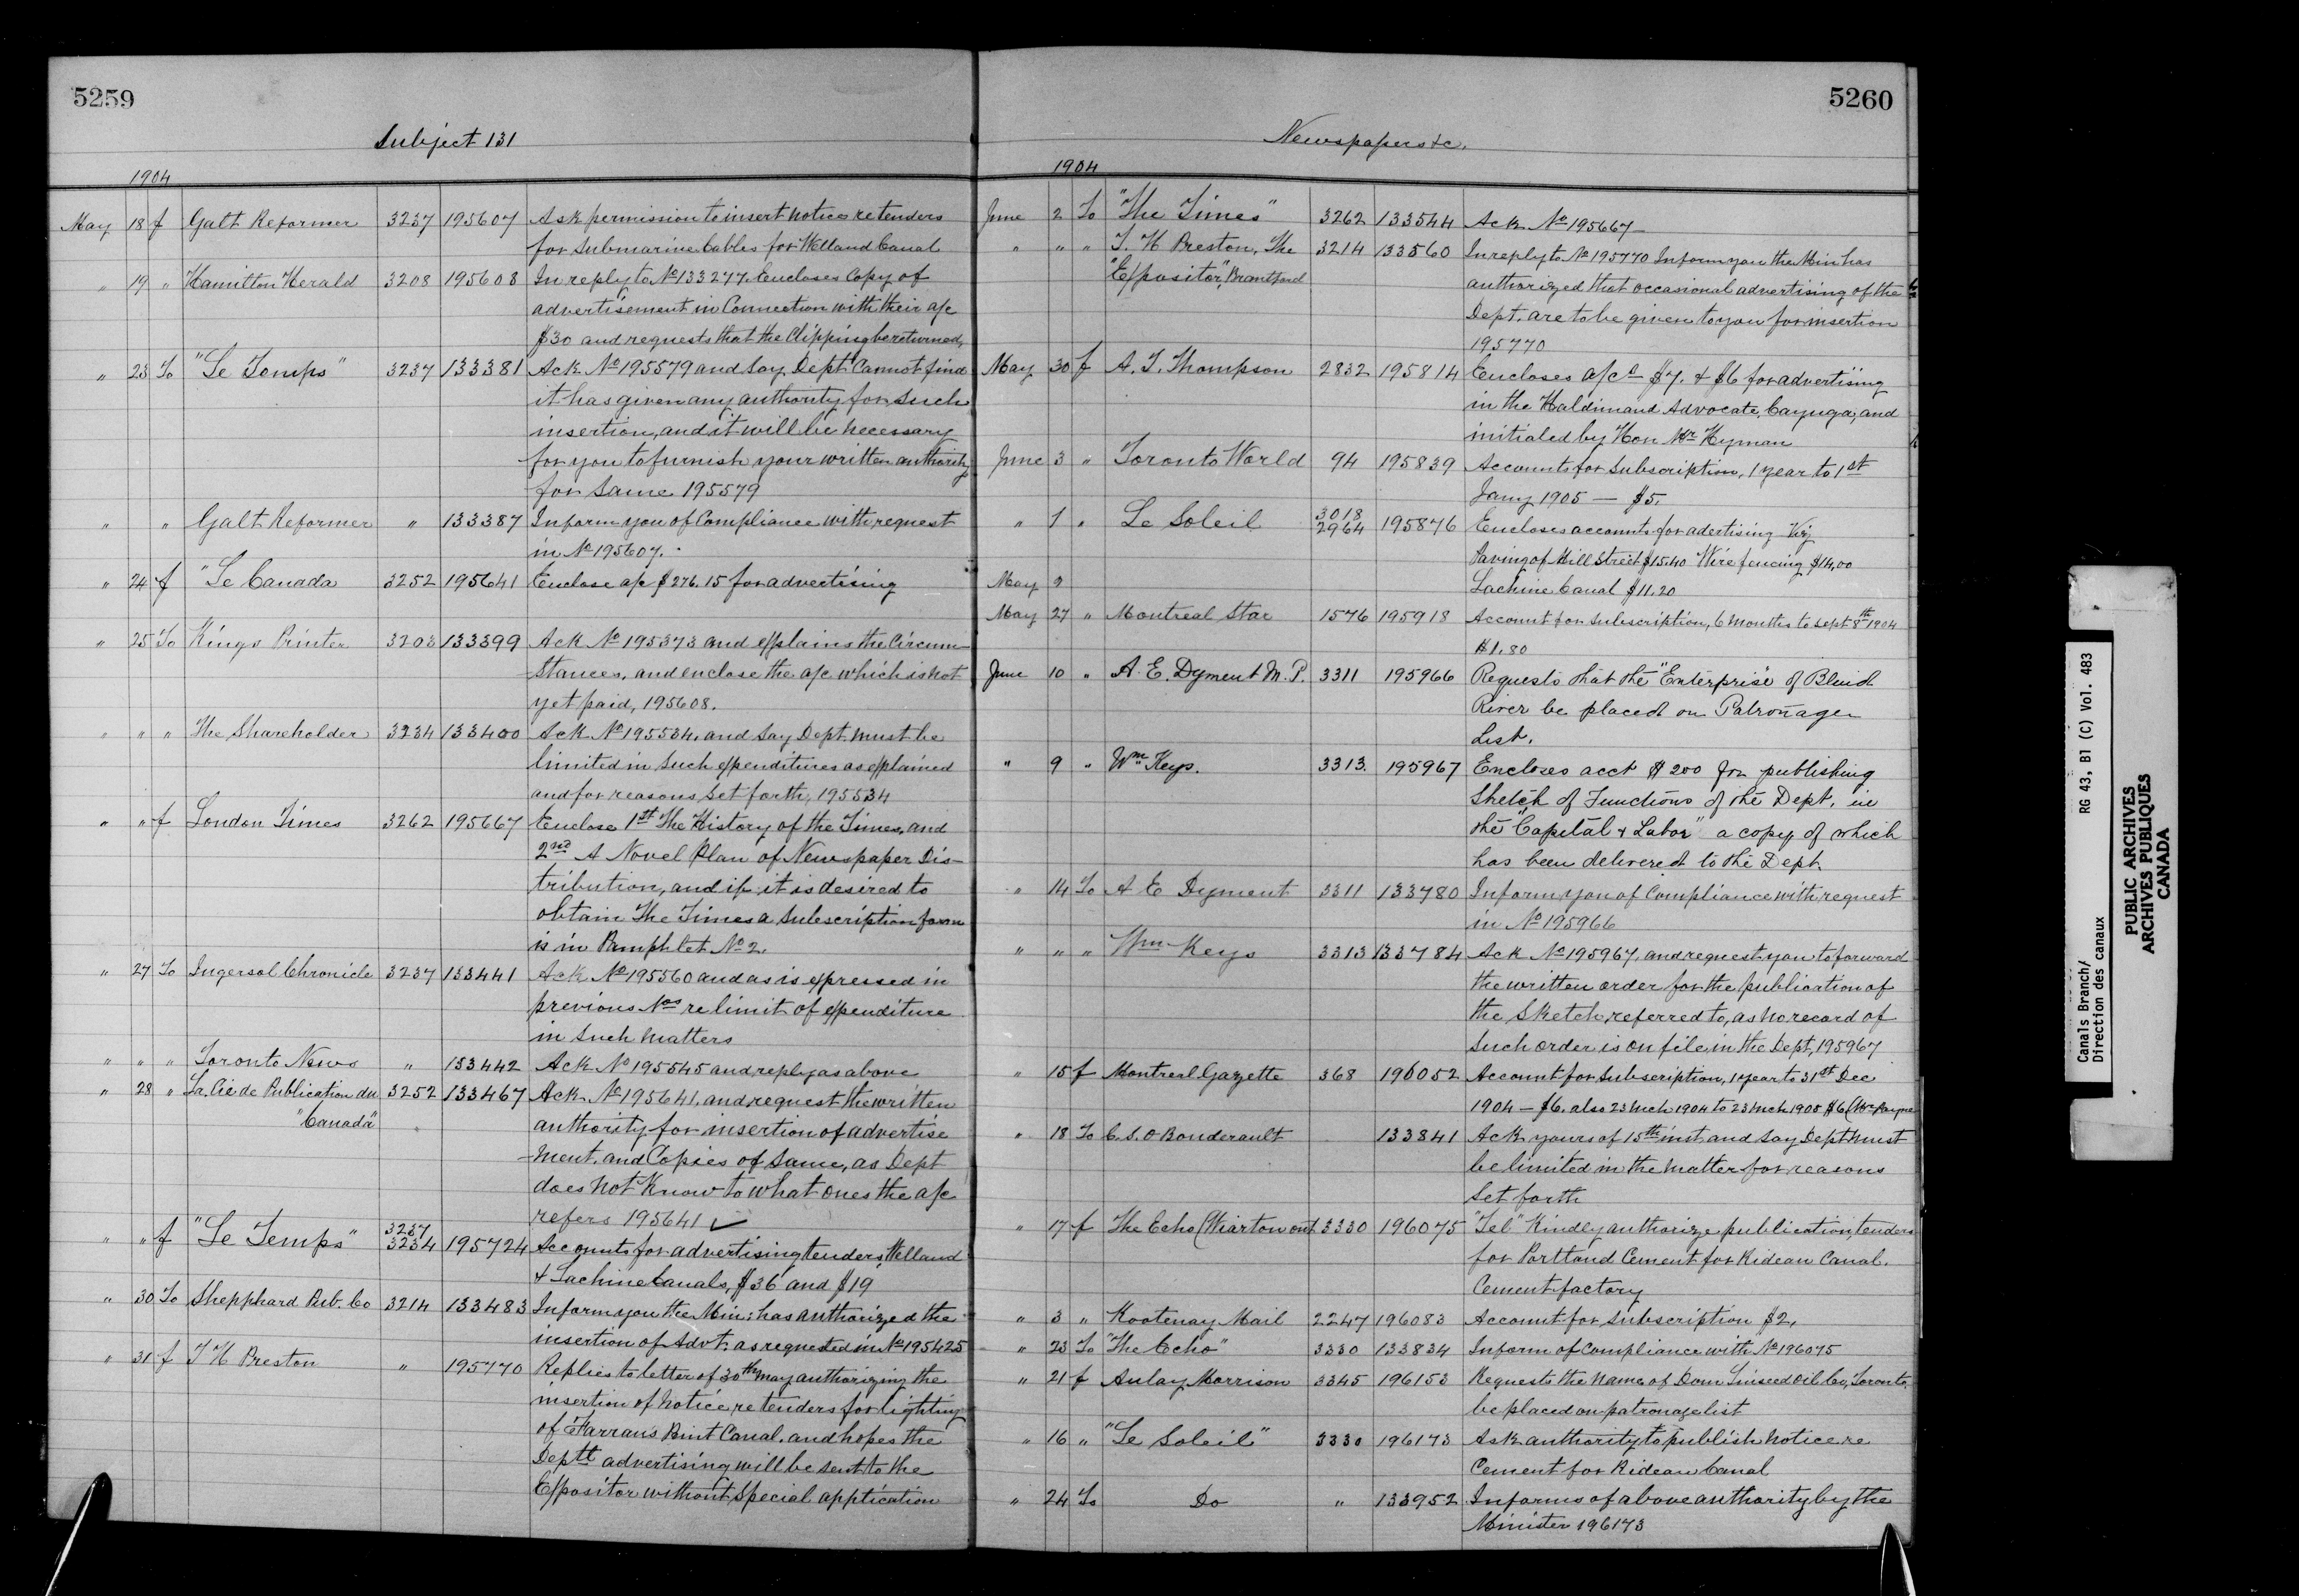 5259
Subject 131
1904
May 18 f Galt Reformer 3237 195607 Ask permission to insert notice re tenders
for Submarine Cables for Welland Canal
" 19 " Hamilton Herald 3208 195608 In reply to No 133277. Encloses Copy of
advertisement in Connection with their a/c
$30 and requests that the Clipping be returned,
" 23 To "Le Temps" 3237 133381 Ack No 195579 and say Dept Cannot find
it has given any authority for such
insertion, and it will be necessary
for you to furnish your written authority
for same 195579
" " Galt Reformer " 133387 Inform you of Compliance with request
in No 195607.
" 24 f "Le Canada 3252 195641 Enclose a/c $276.15 for advertising
" 25 To Kings Printer 3203 133399 Ack No 195373 and explains the Circum-
stances, and enclose the a/c which is not
yet paid, 195608.
" " " The Shareholder 3234 133400 Ack No 195534, and say Dept must be
limited in such expenditures as explained
and for reasons set forth, 195534
" " f London Times 3262 195667 Enclose 1st The History of the Times, and
2nd A Novel Plan of Newspaper Dis-
tribution, and if it is desired to
obtain The Times a subscription form
is in Pamphlet No 2.
" 27 To Ingersol Chronicle 3237 133441 Ack No 195560 and as is expressed in
previous Nos re limit of expenditure
in such matters
" " " Toronto News " 133442 Ack No 195545 and reply as above
" 28 " La Cie de Publication du 3252 133467 Ack No 195641, and request the written
"Canada" authority for insertion of advertise
-ment, and Copies of same, as Dept
does not know to what ones the a/c
refers 195641 ✓
" " f "Le Temps" 3237
3234 195724 Accounts for advertising tenders, Welland
& Lachine Canals, $36 and $19
" 30 To Shepphard Pub. Co 3214 133483 Inform you the Min: has authorized the
insertion of Advt. as requested in No 195425
" 31 f T H Preston " 195770 Replies to letter of 30th May authorizing the
insertion of notice, re tenders for lighting
of Farrans Point Canal, and hopes the
Deptl advertising will be sent to the
Expositor without special application
5260
Newspapers &c.
1904
June 2 To "The Times" 3262 133544 Ack No 195667
" " " T. H Preston, The 3214 133560 In reply to No 195770 Inform you the Min has
"Expositor", Brantford authorized that occasional advertising of the
Dept. are to be given to you for insertion
195770
May 30 f A. T. Thompson 2832 195814 Encloses a/cs $7. & $6 for advertising
in the Haldimand Advocate, Cayuga, and
initialed by Hon Mr Hyman
June 3 " Toronto World 94 195839 Accounts for Subscription, 1 year to 1st
Jany 1905 — $5.
" 1 " Le Soleil 3018
2964 195876 Encloses accounts for adertising Viz
Paving of Mill Street $15.40 Wire fencing $14,00
May 9 Lachine Canal $11.20
May 27 " Montreal Star 1576 195918 Account for subscription, 6 months to Sept 8th 1904
$1.80
June 10 " A. E. Dyment M. P. 3311 195966 Requests that the "Enterprise" of Blind
River be placed on Patronage
List.
" 9 " Wm Keys. 3313. 195967 Encloses acct $200 for publishing
sketch of Functions of the Dept. in
the "Capital & Labor" a copy of which
has been delivered to the Dept.
" 14 To A E Dyment 3311 133780 Inform you of Compliance with request
in No 195966
" " " Wm Keys 3313 133784 Ack No 195967, and request you to forward
the written order for the publication of
the Sketch, referred to, as no record of
such order is on file, in the Dept, 195967
" 15 f Montreal Gazette 368 196052 Account for Subscription, 1 year to 31st Dec
1904 — $6. also 23 Mch 1904 to 23 Mch 1905 $6 (Mr Payne
" 18 To C. S. O Bonderault 133841 Ack yours of 15th inst and say Dept must
be limited in the matter for reasons
set forth
" 17 f The Echo (Wiarton ont 3330 196075 "Tel" Kindly authorize publication, tenders
for Portland Cement for Rideau Canal.
Cement factory
" 3 " Kootenay Mail 2247 196083 Account for subscription $2,
" 23 To "The Echo" 3330 133834 Inform of Compliance with No 196075
" 21 f Aulay Morrison 3345 196153 Requests the name of Dom Linseed Oil Co, Toronto,
be placed on patronage list
" 16 " "Le Soleil" 3330 196173 Ask authority to publish notice re
Cement for Rideau Canal
" 24 To Do " 133952 Informs of above authority by the
Minister 196173
Canals Branch/ RG 43, B1 (C) Vol. 483
Direction des canaux
PUBLIC ARCHIVES
ARCHIVES PUBLIQUES
CANADA